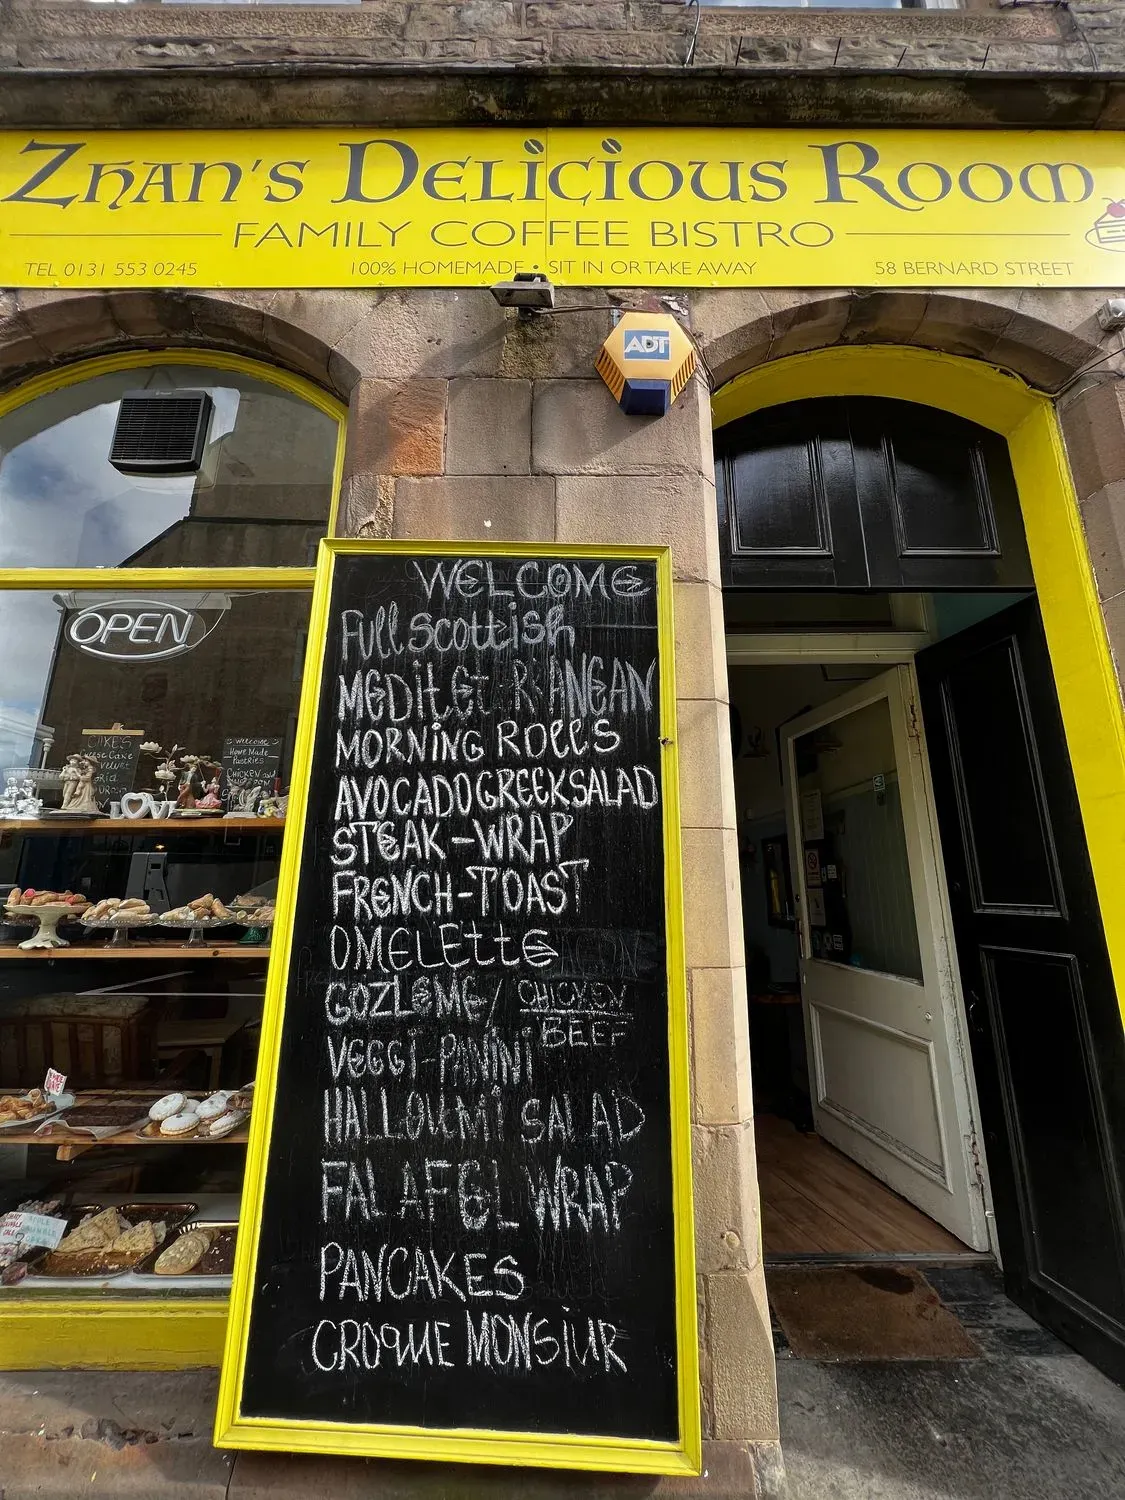 Zhan's Delicious Room
FAMILY COFFEE BISTRO
TEL 0131 553 0245
100% HOMEMADE • SIT IN OR TAKE AWAY
58 BERNARD STREET
ADT
OPEN
WELCOME
Full Scottish
MEDITETRANEAN
MORNING ROLLS
AVOCADO GREEK SALAD
STEAK - WRAP
FRENCH - TOAST
OMELETTE
GOZLEME / CHICKEN
BEEF
VEGGI - PANINI
HALLOUMI SALAD
FALAFEL WRAP
PANCAKES
CROQUE MONSIUR
Welcome
Home Made
Pastries
CHICKEN